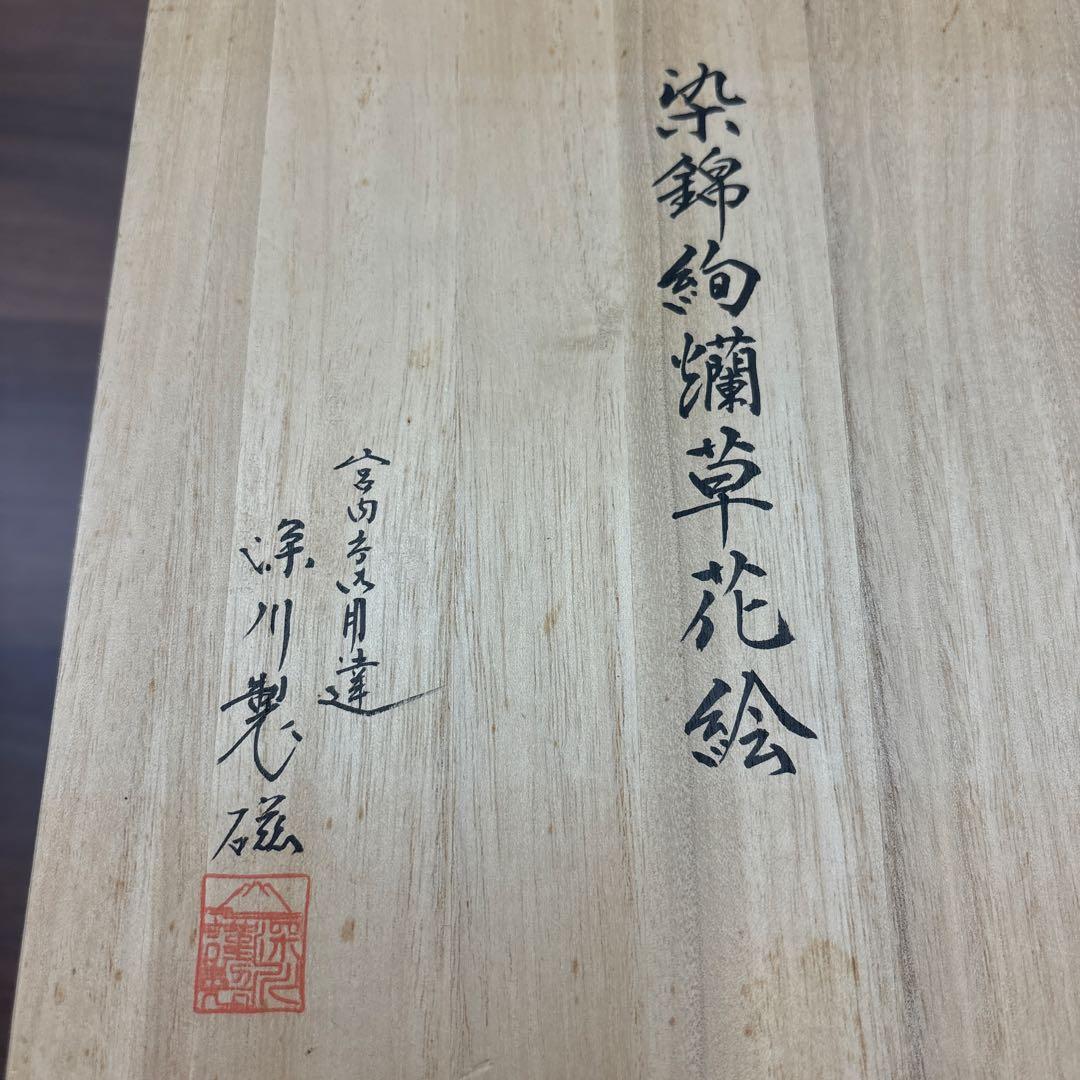 染錦絢爛草花絵
宮内庁御用達
深川製磁
深川謹製